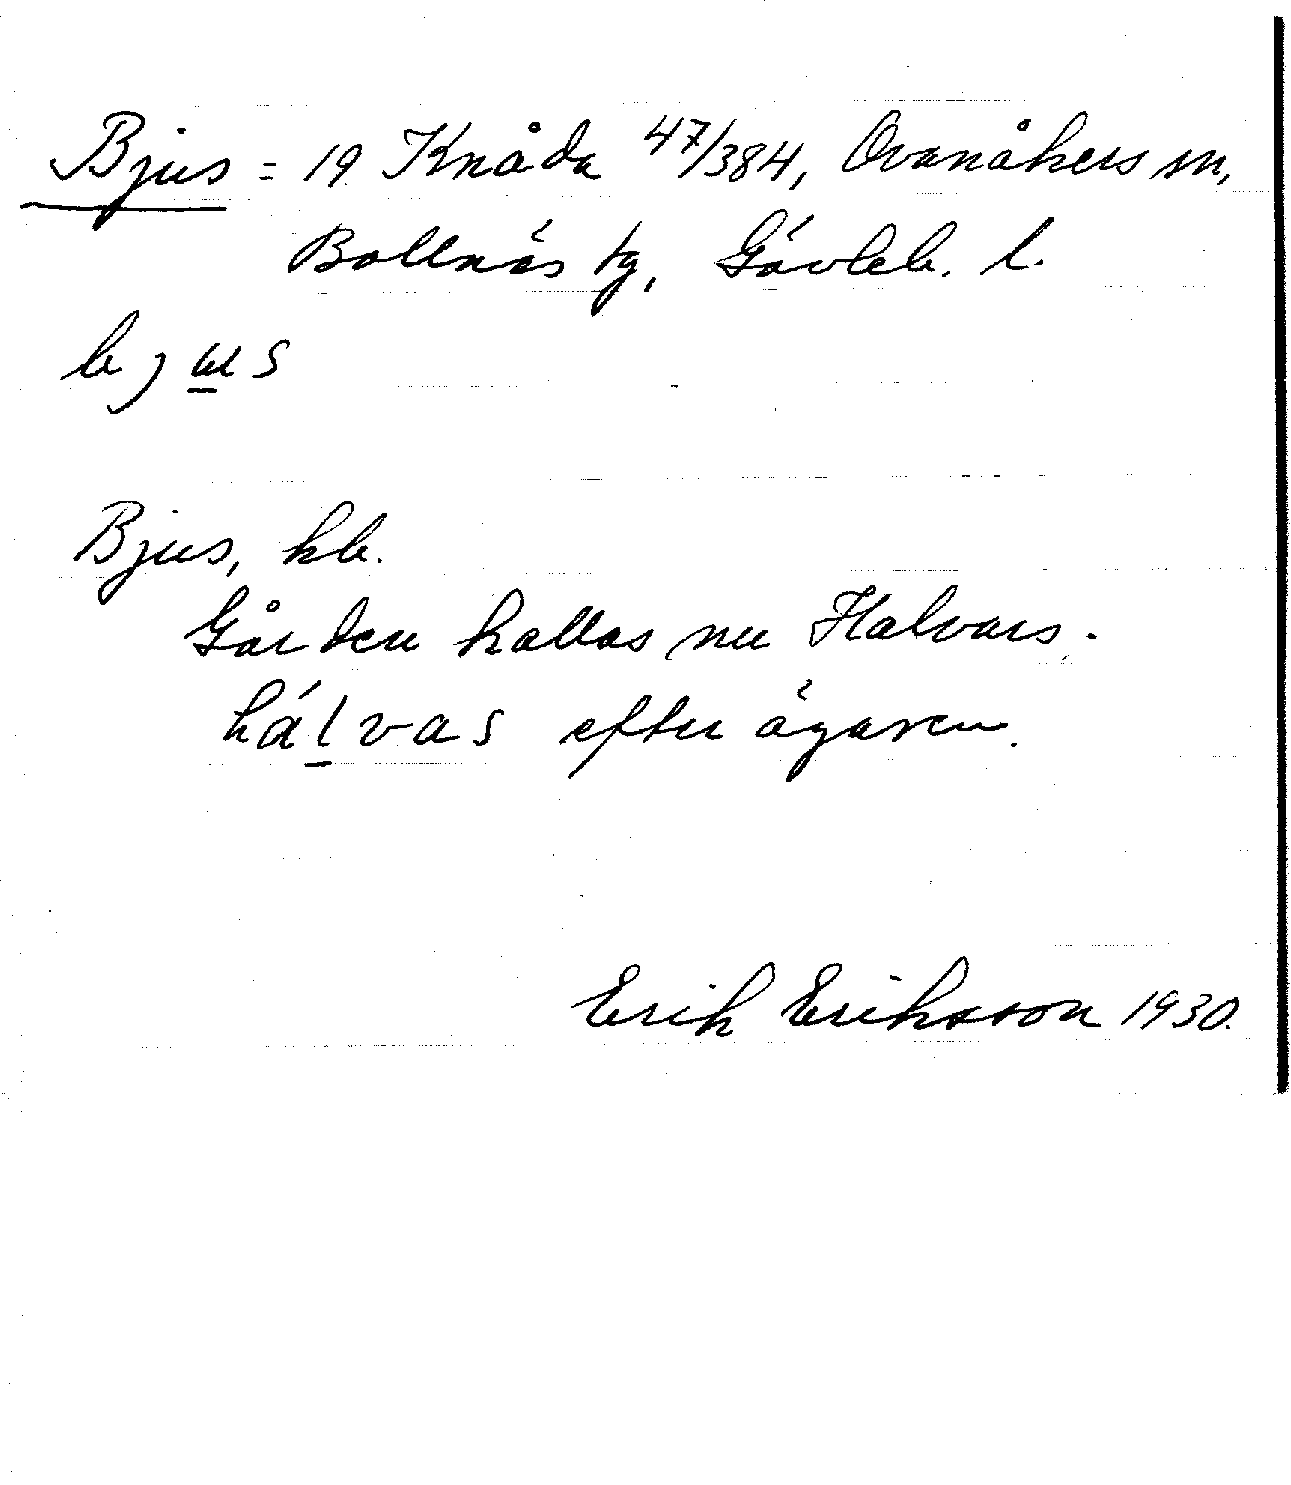 Bjus = 19 Knåda 47/384, Ovanåkers sn,
Bollnäs tg, Gävleb. l.
bjus
Bjus, kb.
Gården kallas nu Halvars.
hálvas efter ägaren.
Erik Eriksson 1930.